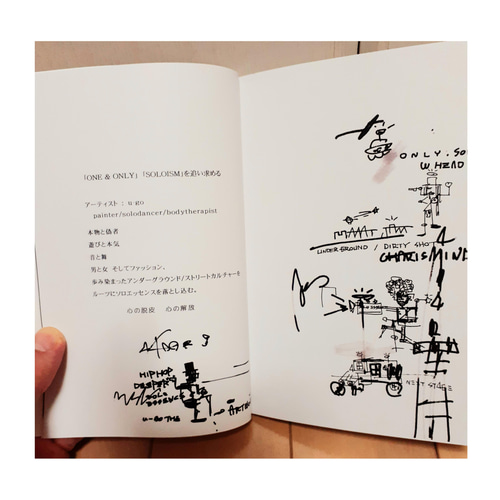 「ONE & ONLY」「SOLOISM」を追い求める
アーティスト：u go
painter/solodancer/bodytherapist
本物と偽者
遊びと本気
音と舞
男と女 そしてファッション。
歩み染まったアンダーグラウンド/ストリートカルチャーを
ルーツにソロエッセンスを落とし込む。
心の脱皮 心の解放
HIPHOP
ONLY.SO
W.HEAD
UNDERGROUND / DIRTY SHOT
CHARISMIND
NEXT STAGE